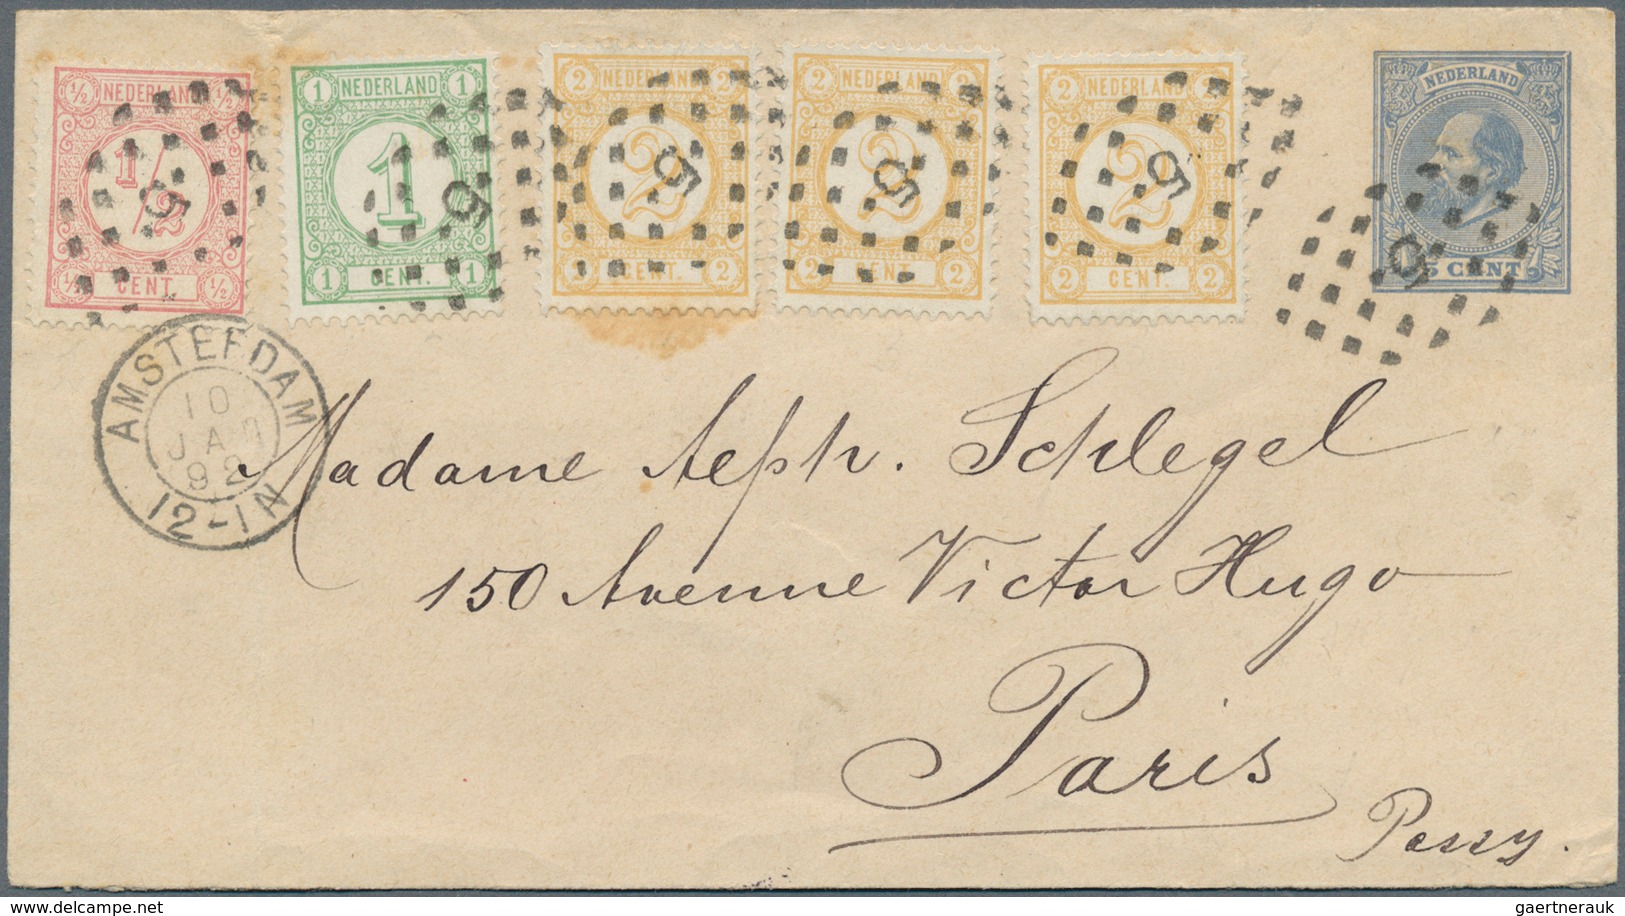 ½ NEDERLAND ½
½
½ CENT. ½
1 NEDERLAND 1
1
1 CENT. 1
2 NEDERLAND 2
2
2 CENT. 2
2 NEDERLAND 2
2
2 CENT. 2
2 NEDERLAND 2
2
2 CENT. 2
NEDERLAND
5 CENT
5
5
5
AMSTERDAM
10
JAN
92
12-1N
Madame Aeph. Schlegel
150 Avenue Victor Hugo
Paris
Passy.
www.delcampe.net
gaertnerauk